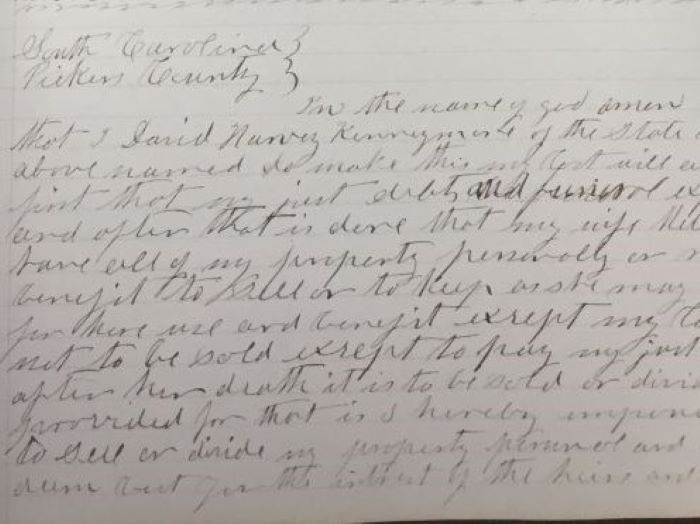 South Carolina }
Pickens County }
In the name of god amen
that I David Harvey Kennymore of the State
above named do make this my last will
first that my just debts and funerol
and after that is done that my wife
have all of my property personaly or
benefit to sell or to keep as she may
for here use and benefit exsept my
not to be sold exsept to pay my just
after her death it is to be sold or
provided for that is I hereby
to sell or divide my property personel and
deem best for the intrest of the heirs and